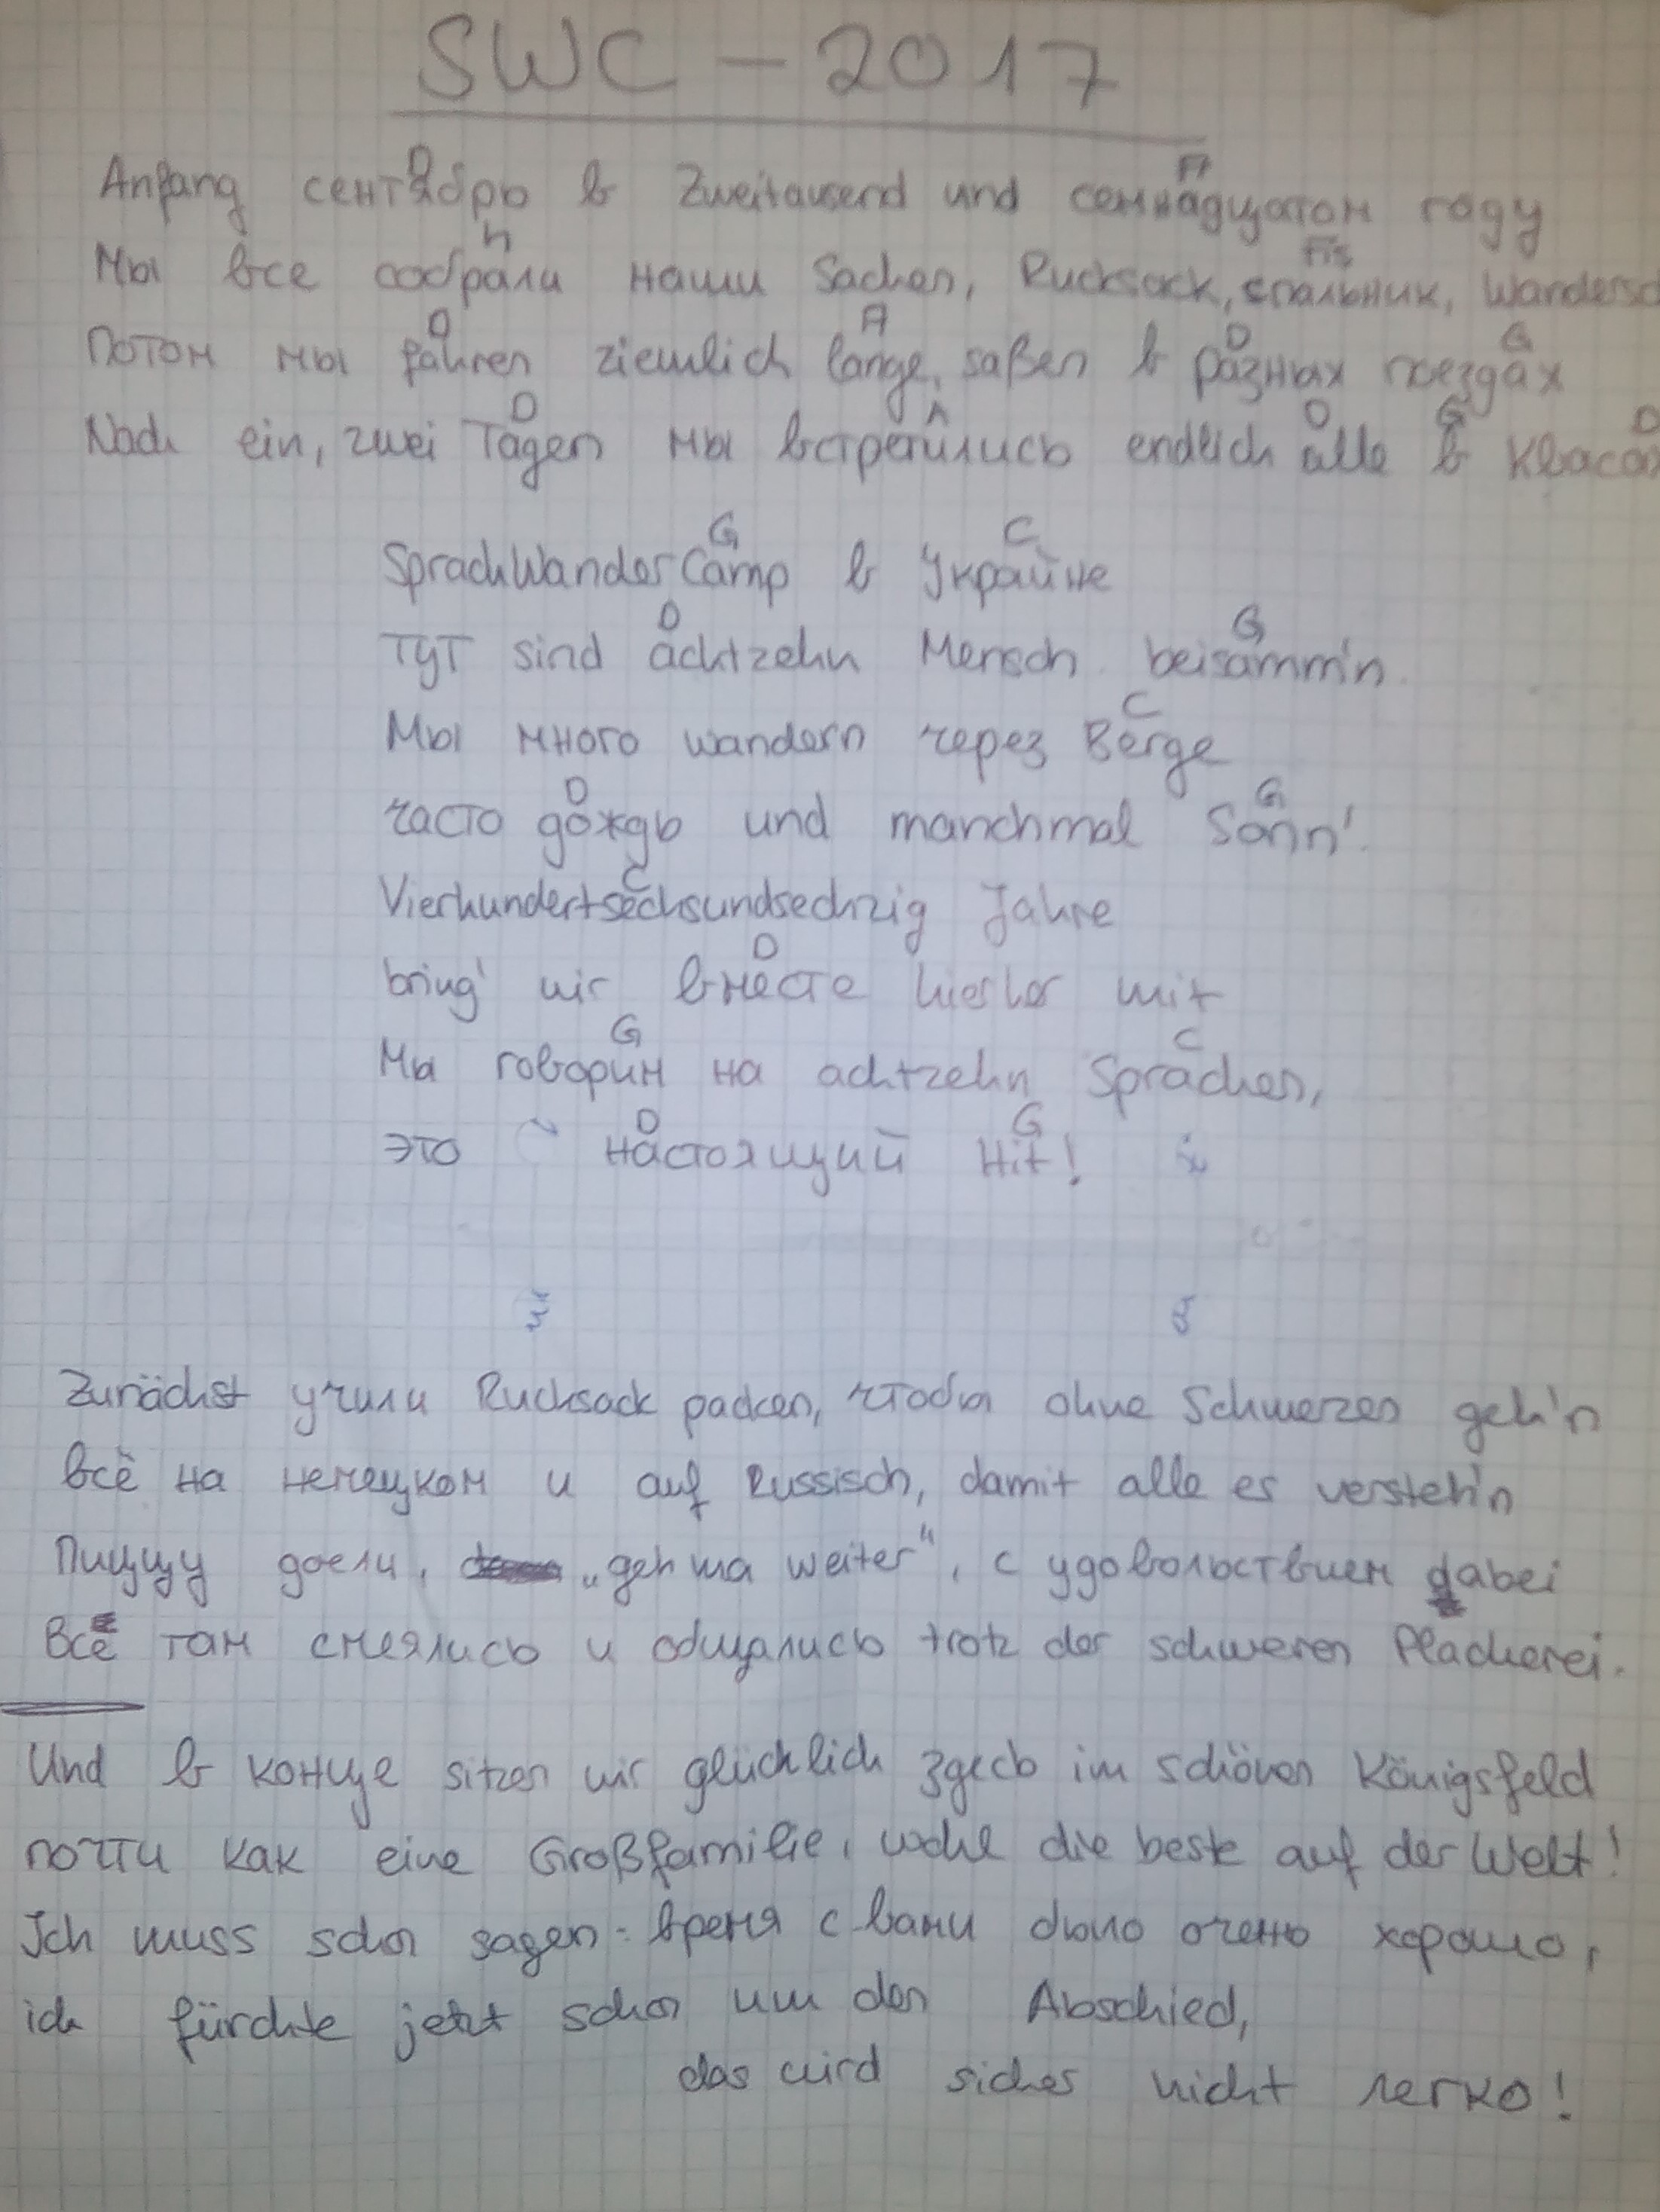 SWC - 2017
D A
Anfang сентябрь в Zweitausend und семнадцатом году
h Fis
Мы все собрали наши Sachen, Rucksack, спальник, Wandersc
D A D G
Потом мы fahren ziemlich lange, saßen в разных поездах
D A D G D
Nach ein, zwei Tagen мы встретились endlich alle в Кваса
G C
SprachWanderCamp в Украйне
D G
Тут sind achtzehn Mensch beisamm'n.
C
Мы много wandern через Berge
D G
часто дождь und manchmal Sonn'.
C
Vierhundertsechsundsechzig Jahre
D
bring' wir вместе hierher mit
G C
Мы говорим на achtzehn Sprachen,
D G
это настоящий Hit!
Zunächst учили Rucksack packen, чтобы ohne Schmerzen geh'n
всё на немецком и auf Russisch, damit alle es versteh'n
Пиццу доели, „geh ma weiter“, с удовольствием dabei
Все там смеялись и общались trotz der schweren Plackerei.
Und в конце sitzen wir glücklich здесь im schönen Königsfeld
почти как eine Großfamilie, wohl die beste auf der Welt!
Ich muss schon sagen: время с вами было очень хорошо,
ich fürchte jetzt schon um den Abschied,
das wird sicher nicht легко!